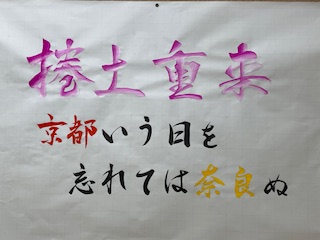 捲土重来
京都いう日を
忘れては奈良ぬ